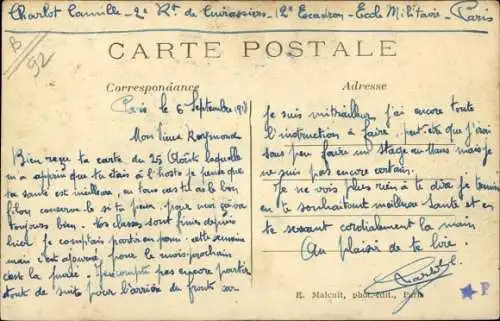 Charlot Camille - 2e Rt de Cuirassiers - 12e Escadron - Ecole Militaire - Paris
B/92
CARTE POSTALE
Correspondance
Adresse
Paris le 6 Septembre 1918
Mon Vieux Raymond
Bien reçu ta carte du 25 Août laquelle
m'a appris que tu étais à l'hosto je pense que
ta santé est meilleure, en tous cas tu as le bon
filon conserve le si tu peux, pour moi ça va
toujours bien. Nos classes sont finies depuis
hier. Je comptais partir en perm. cette semaine
mais c'est ajourné, pour le mois prochain
c'est la fuare. Je compte pas encore partir
tout de suite pour l'arrière du front car
je suis mitrailleur j'ai encore toute
l'instruction à faire. peut-être que j'irai
sous peu faire un stage au Mans mais je
ne suis pas encore certain.
Je ne vois plus rien à te dire je termine
en te souhaitant meilleure Santé et en
te serrant cordialement la main
Au plaisir de te lire.
Charlot C.
E. Malcuit, phot.-édit., Paris
P